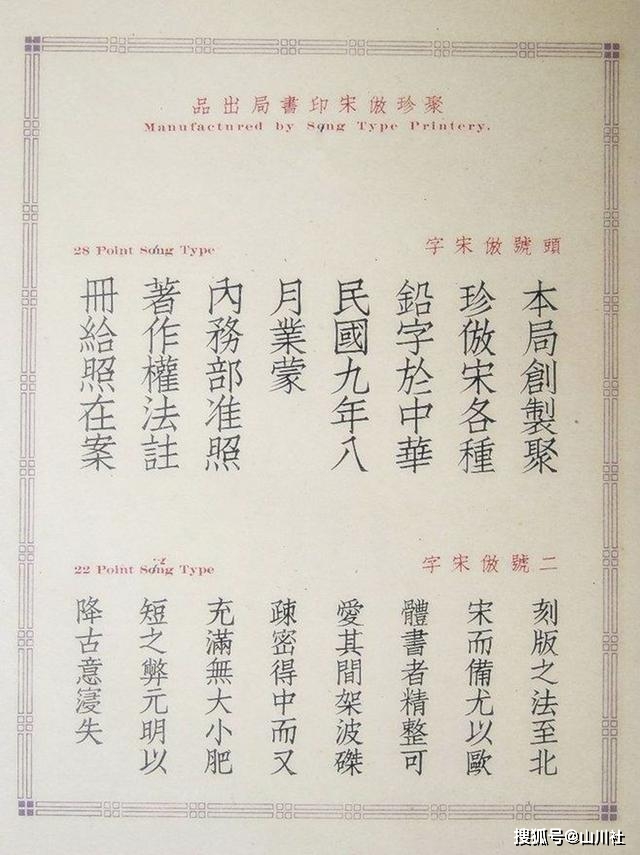 聚珍倣宋印書局出品
Manufactured by Song Type Printery.
頭號倣宋字
28 Point Song Type
本局創製聚
珍倣宋各種
鉛字於中華
民國九年八
月業蒙
內務部准照
著作權法註
冊給照在案
二號倣宋字
22 Point Song Type
刻版之法至北
宋而備尤以歐
體書者精整可
愛其間架波磔
疎密得中而又
充滿無大小肥
短之弊元明以
降古意寖失
搜狐号@山川社